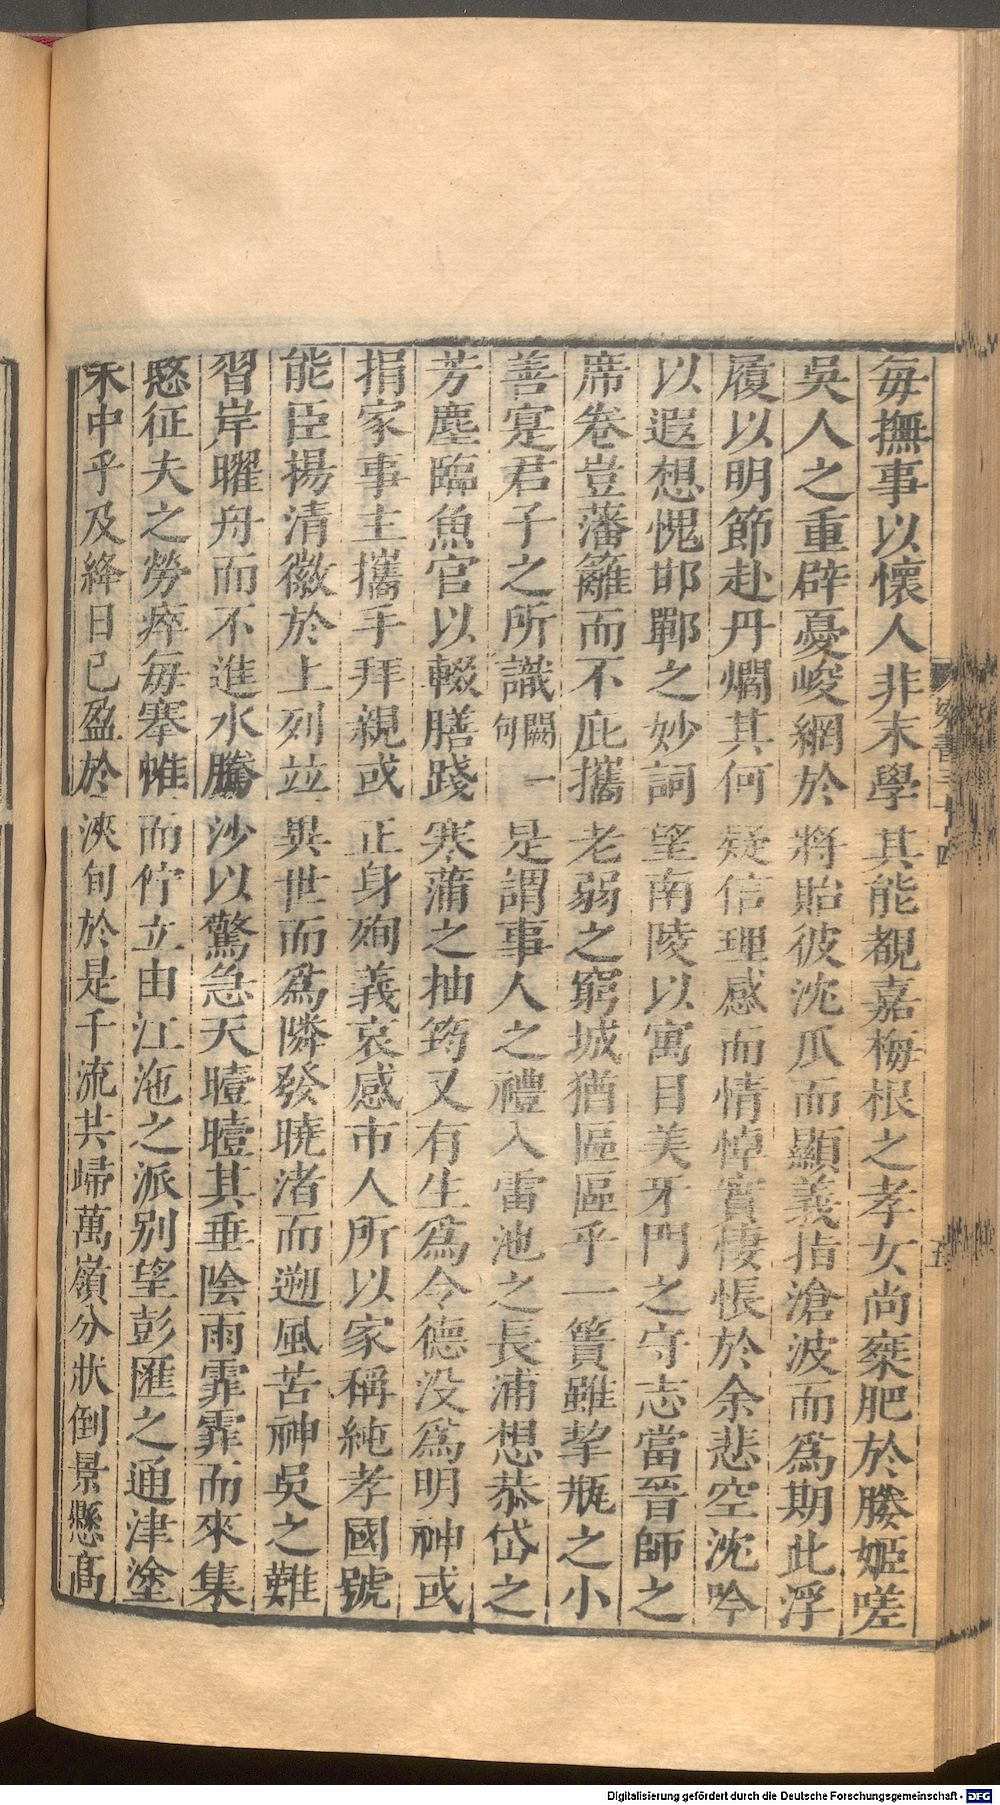 每撫事以懷人非末學其能覩嘉梅根之孝女尚棄肥於媵姬嗟
吳人之重辟憂峻網於將貽彼沈瓜而顯義指滄波而爲期此浮
履以明節赴丹爓其何疑信理感而情悼實悽悵於余悲空沈吟
以遐想愧邯鄲之妙詞望南陵以寓目美牙門之守志當晉師之
席卷豈藩籬而不庇攜老弱之窮城猶區區乎一簣雖挈瓶之小
善寔君子之所識闕一句是謂事人之禮入雷池之長浦想恭岱之
芳塵臨魚官以輟膳踐寒蒲之抽筠又有生爲令德没爲明神或
捐家事主攜手拜親或正身殉義哀感市人所以家稱純孝國號
能臣揚清徽於上列並異世而爲隣發曉渚而遡風苦神吳之難
習岸曜舟而不進水騰沙以驚急天曀曀其垂陰雨霏霏而來集
愍征夫之勞瘁每搴帷而佇立由江沲之派别望彭匯之通津塗
未中乎及絳日已盈於浹旬於是千流共歸萬嶺分狀倒景懸高
宋書三十四
五
Digitalisierung gefördert durch die Deutsche Forschungsgemeinschaft - DFG